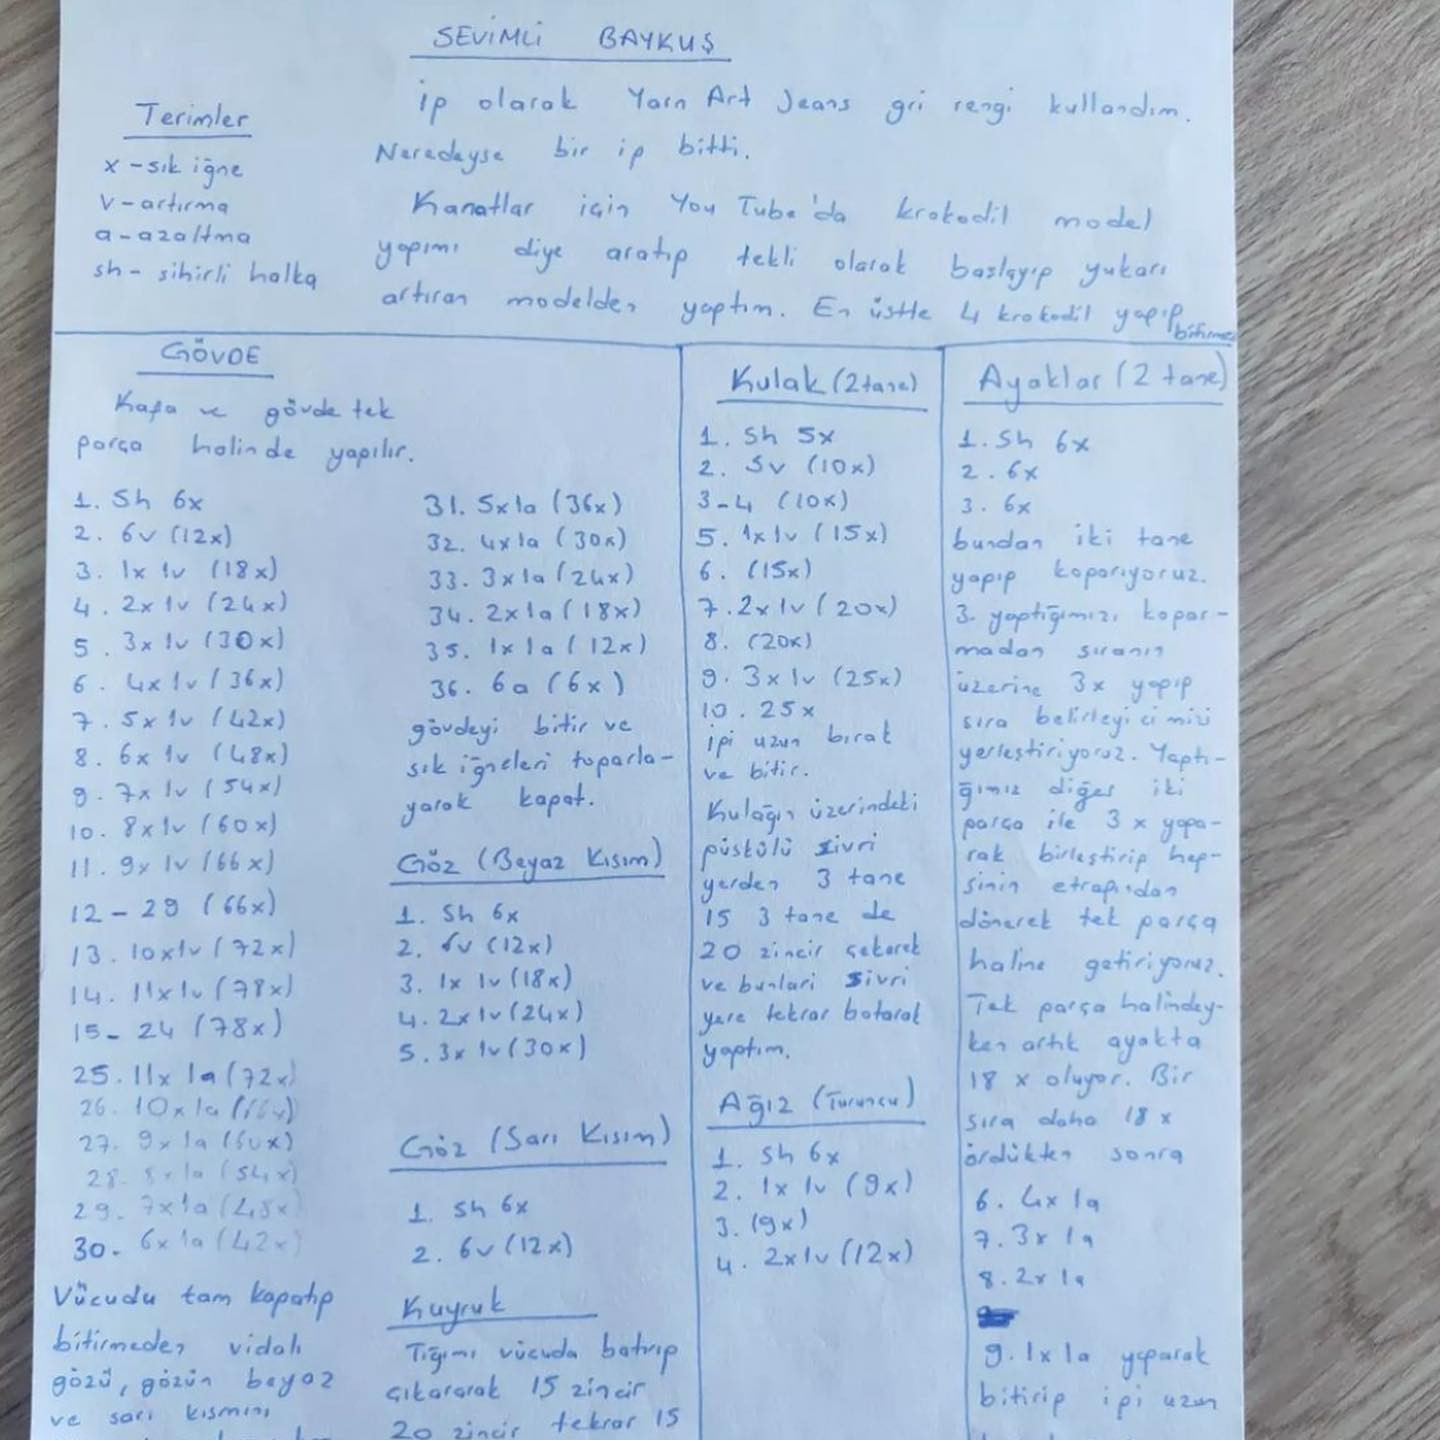 SEVİMLİ BAYKUŞ
İp olarak Yarn Art Jeans gri rengi kullandım.
Neredeyse bir ip bitti.
Kanatlar için You Tube'da krokodil model
yapımı diye aratıp tekli olarak başlayıp yukarı
artıran modelden yaptım. En üstte 4 krokodil yapıp
Terimler
x - sık iğne
v - artırma
a - azaltma
sh - sihirli halka
GÖVDE
Kafa ve gövde tek
parça halinde yapılır.
1. Sh 6x
2. 6v (12x)
3. 1x 1v (18x)
4. 2x 1v (24x)
5. 3x 1v (30x)
6. 4x 1v (36x)
7. 5x 1v (42x)
8. 6x 1v (48x)
9. 7x 1v (54x)
10. 8x 1v (60x)
11. 9x 1v (66x)
12 - 29 (66x)
13. 10x1v (72x)
14. 11x1v (78x)
15 - 24 (78x)
25. 11x 1a (72x)
26. 10x1a (66x)
27. 9x1a (60x)
28. 8x1a (54x)
29. 7x1a (48x)
30. 6x1a (42x)
Vücudu tam kapatıp
bitirmeden vidalı
gözü, gözün beyaz
ve sarı kısmını
31. 5x1a (36x)
32. 4x1a (30x)
33. 3x1a (24x)
34. 2x1a (18x)
35. 1x1a (12x)
36. 6a (6x)
gövdeyi bitir ve
sık iğneleri toparla-
yarak kapat.
Göz (Beyaz Kısım)
1. Sh 6x
2. 6v (12x)
3. 1x 1v (18x)
4. 2x1v (24x)
5. 3x 1v (30x)
Göz (Sarı Kısım)
1. Sh 6x
2. 6v (12x)
Kuyruk
Tığımı vücuda batırıp
çıkararak 15 zincir
20 zincir tekrar 15
Kulak (2 tane)
1. Sh 5x
2. 5v (10x)
3-4 (10x)
5. 1x1v (15x)
6. (15x)
7. 2x1v (20x)
8. (20x)
9. 3x1v (25x)
10. 25x
ipi uzun bırak
ve bitir.
Kulağın üzerindeki
püskülü sivri
yerden 3 tane
15 3 tane de
20 zincir çekerek
ve bunları sivri
yere tekrar batarak
yaptım.
Ağız (Turuncu)
1. Sh 6x
2. 1x 1v (9x)
3. (9x)
4. 2x1v (12x)
Ayaklar (2 tane)
1. Sh 6x
2. 6x
3. 6x
bundan iki tane
yapıp koparıyoruz.
3. yaptığımızı kopar-
madan sıranın
üzerine 3x yapıp
sıra belirleyicimizi
yerleştiriyoruz. Yaptı-
ğımız diğer iki
parça ile 3 x yapa-
rak birleştirip hep-
sinin etrafından
dönerek tek parça
haline getiriyoruz.
Tek parça halindey-
ken artık ayakta
18 x oluyor. Bir
sıra daha 18 x
ördükten sonra
6. 4x 1a
7. 3x 1a
8. 2x 1a
9. 1x1a yaparak
bitirip ipi uzun